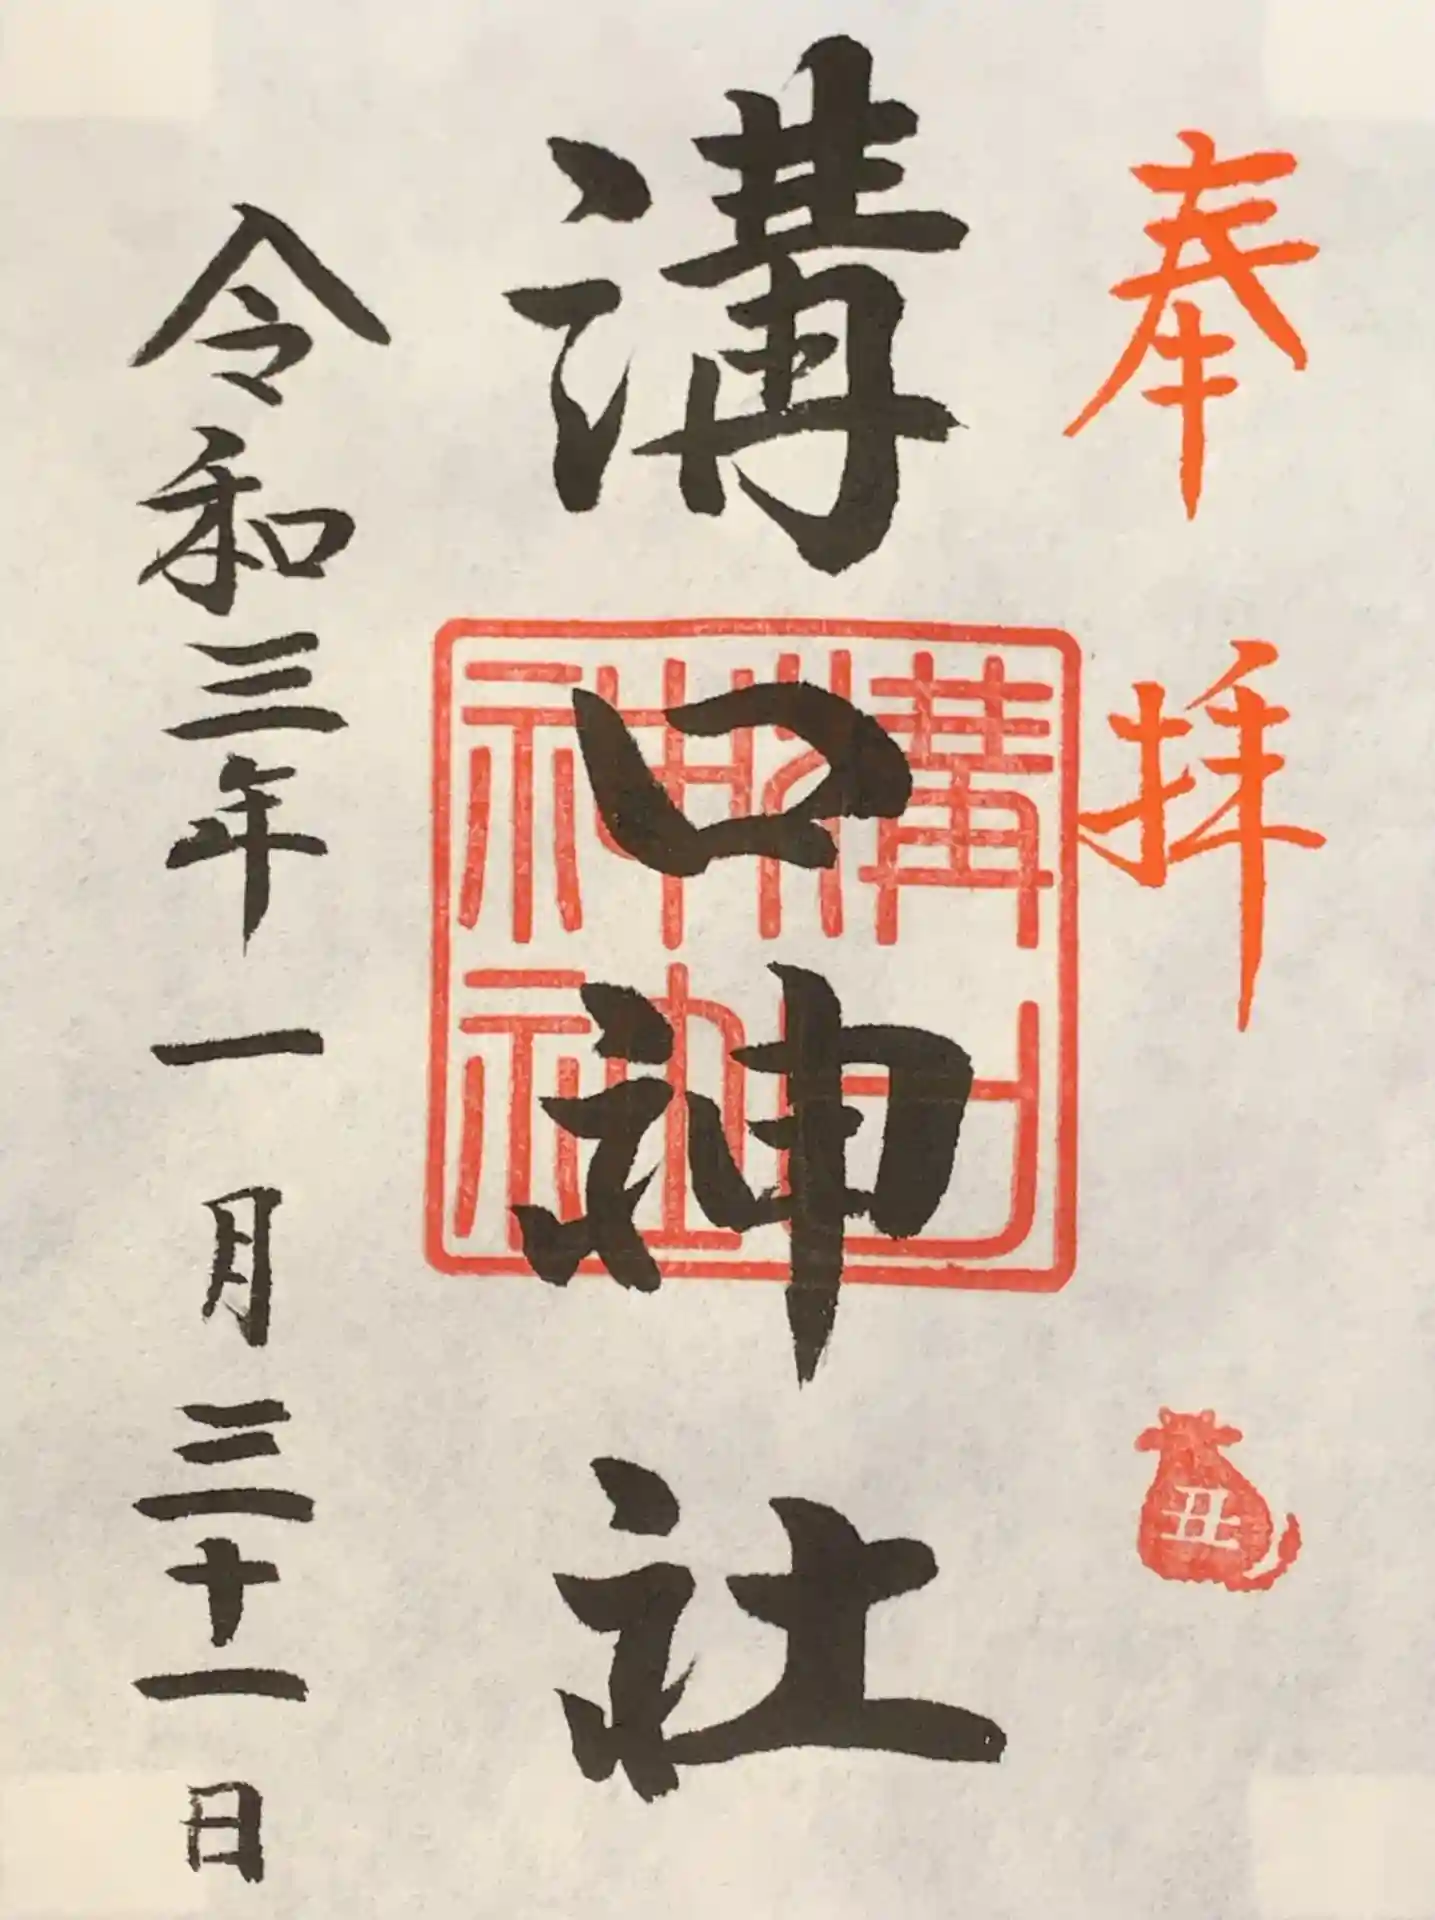 奉拝
丑
溝口神社
溝口神社
令和三年一月三十一日